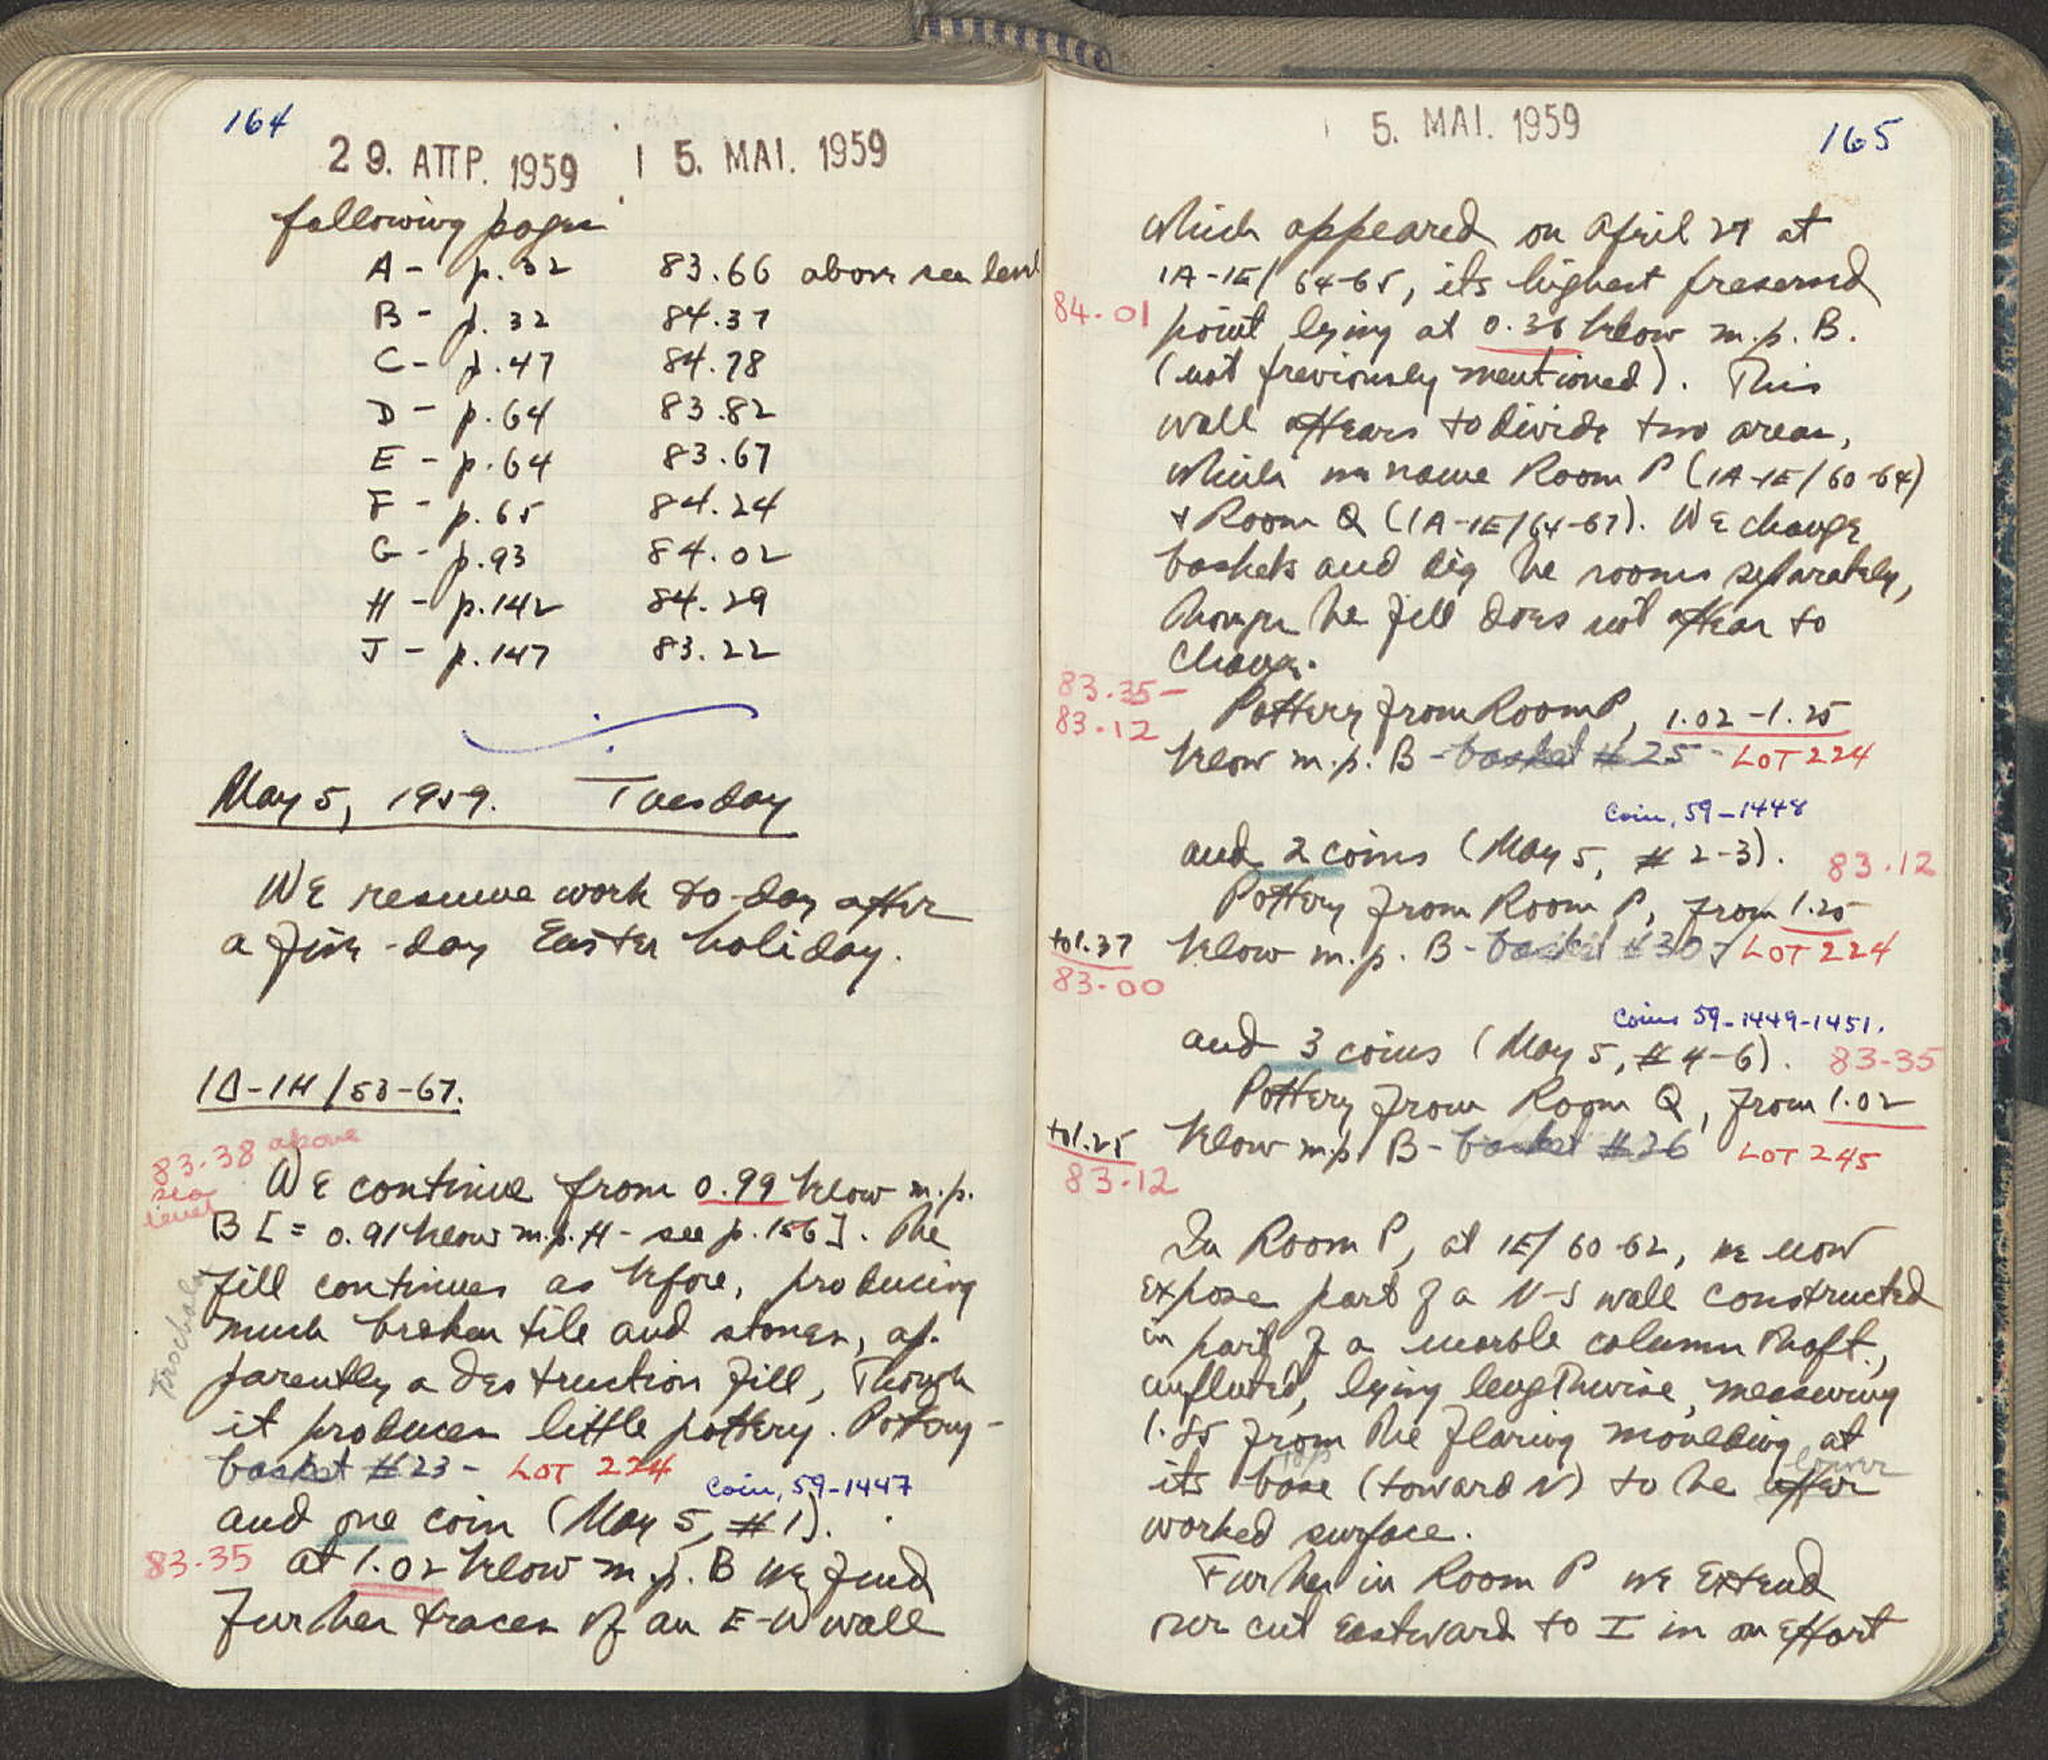 164
29. ΑΠΡ. 1959 5. ΜΑΙ. 1959
following pages
A - p. 32 83.66 above sea level
B - p. 32 84.37
C - p. 47 84.78
D - p. 64 83.82
E - p. 64 83.67
F - p. 65 84.24
G - p. 93 84.02
H - p. 142 84.29
J - p. 147 83.22
May 5, 1959. Tuesday
We resume work to-day after
a five-day Easter holiday.
1Δ-1H/53-67.
83.38 above
sea
level
We continue from 0.99 below m.p.
B [= 0.91 below m.p. H - see p. 156]. The
fill continues as before, producing
much broken tile and stones, ap-
parently a destruction fill, though
it produces little pottery. Pottery -
basket #23 - LOT 224
Coin, 59-1447
and one coin (May 5, #1).
83.35 at 1.02 below m.p. B we find
further traces of an E-W wall
5. ΜΑΙ. 1959
165
which appeared on April 27 at
1A-1E/64-65, its highest preserved
84.01 point lying at 0.36 below m.p. B.
(not previously mentioned). This
wall appears to divide two areas,
which we name Room P (1A-1E/60-64)
& Room Q (1A-1E/64-67). We change
baskets and dig the rooms separately,
though the fill does not appear to
change.
83.35 -
83.12
Pottery from Room P, 1.02-1.25
below m.p. B - basket #25 - LOT 224
Coin, 59-1448
and 2 coins (May 5, #2-3). 83.12
Pottery from Room P, from 1.25
to 1.37 below m.p. B - basket #30 LOT 224
83.00
Coins 59-1449-1451.
and 3 coins (May 5, #4-6). 83.35
Pottery from Room Q, from 1.02
to 1.25 below m.p. B - basket #26 LOT 245
83.12
In Room P, at 1E/60-62, we now
expose part of a N-S wall constructed
in part of a marble column shaft,
unfluted, lying lengthwise, measuring
1.85 from the flaring moulding at
top lower
its base (toward N) to the upper
worked surface.
Further in Room P we extend
our cut eastward to I in an effort